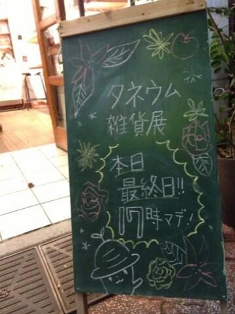 タネウム
雑貨展
本日
最終日!!
17時マデ!